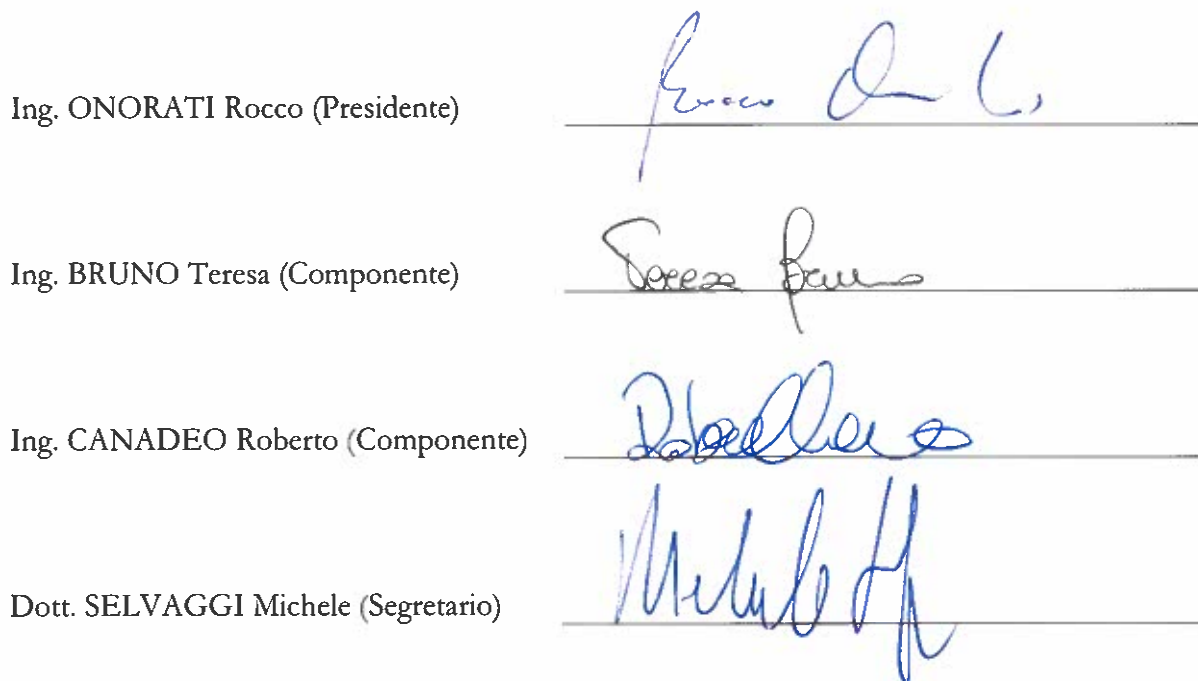 Ing. ONORATI Rocco (Presidente)
Rocco
Ing. BRUNO Teresa (Componente)
Teresa Bruno
Ing. CANADEO Roberto (Componente)
Dott. SELVAGGI Michele (Segretario)
Michele